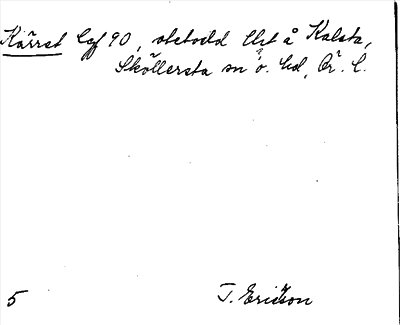 Kärret lgf 90, obebodd lht å Kalsta,
Sköllersta sn o. hd, Ör. l.
5
T. Ericson